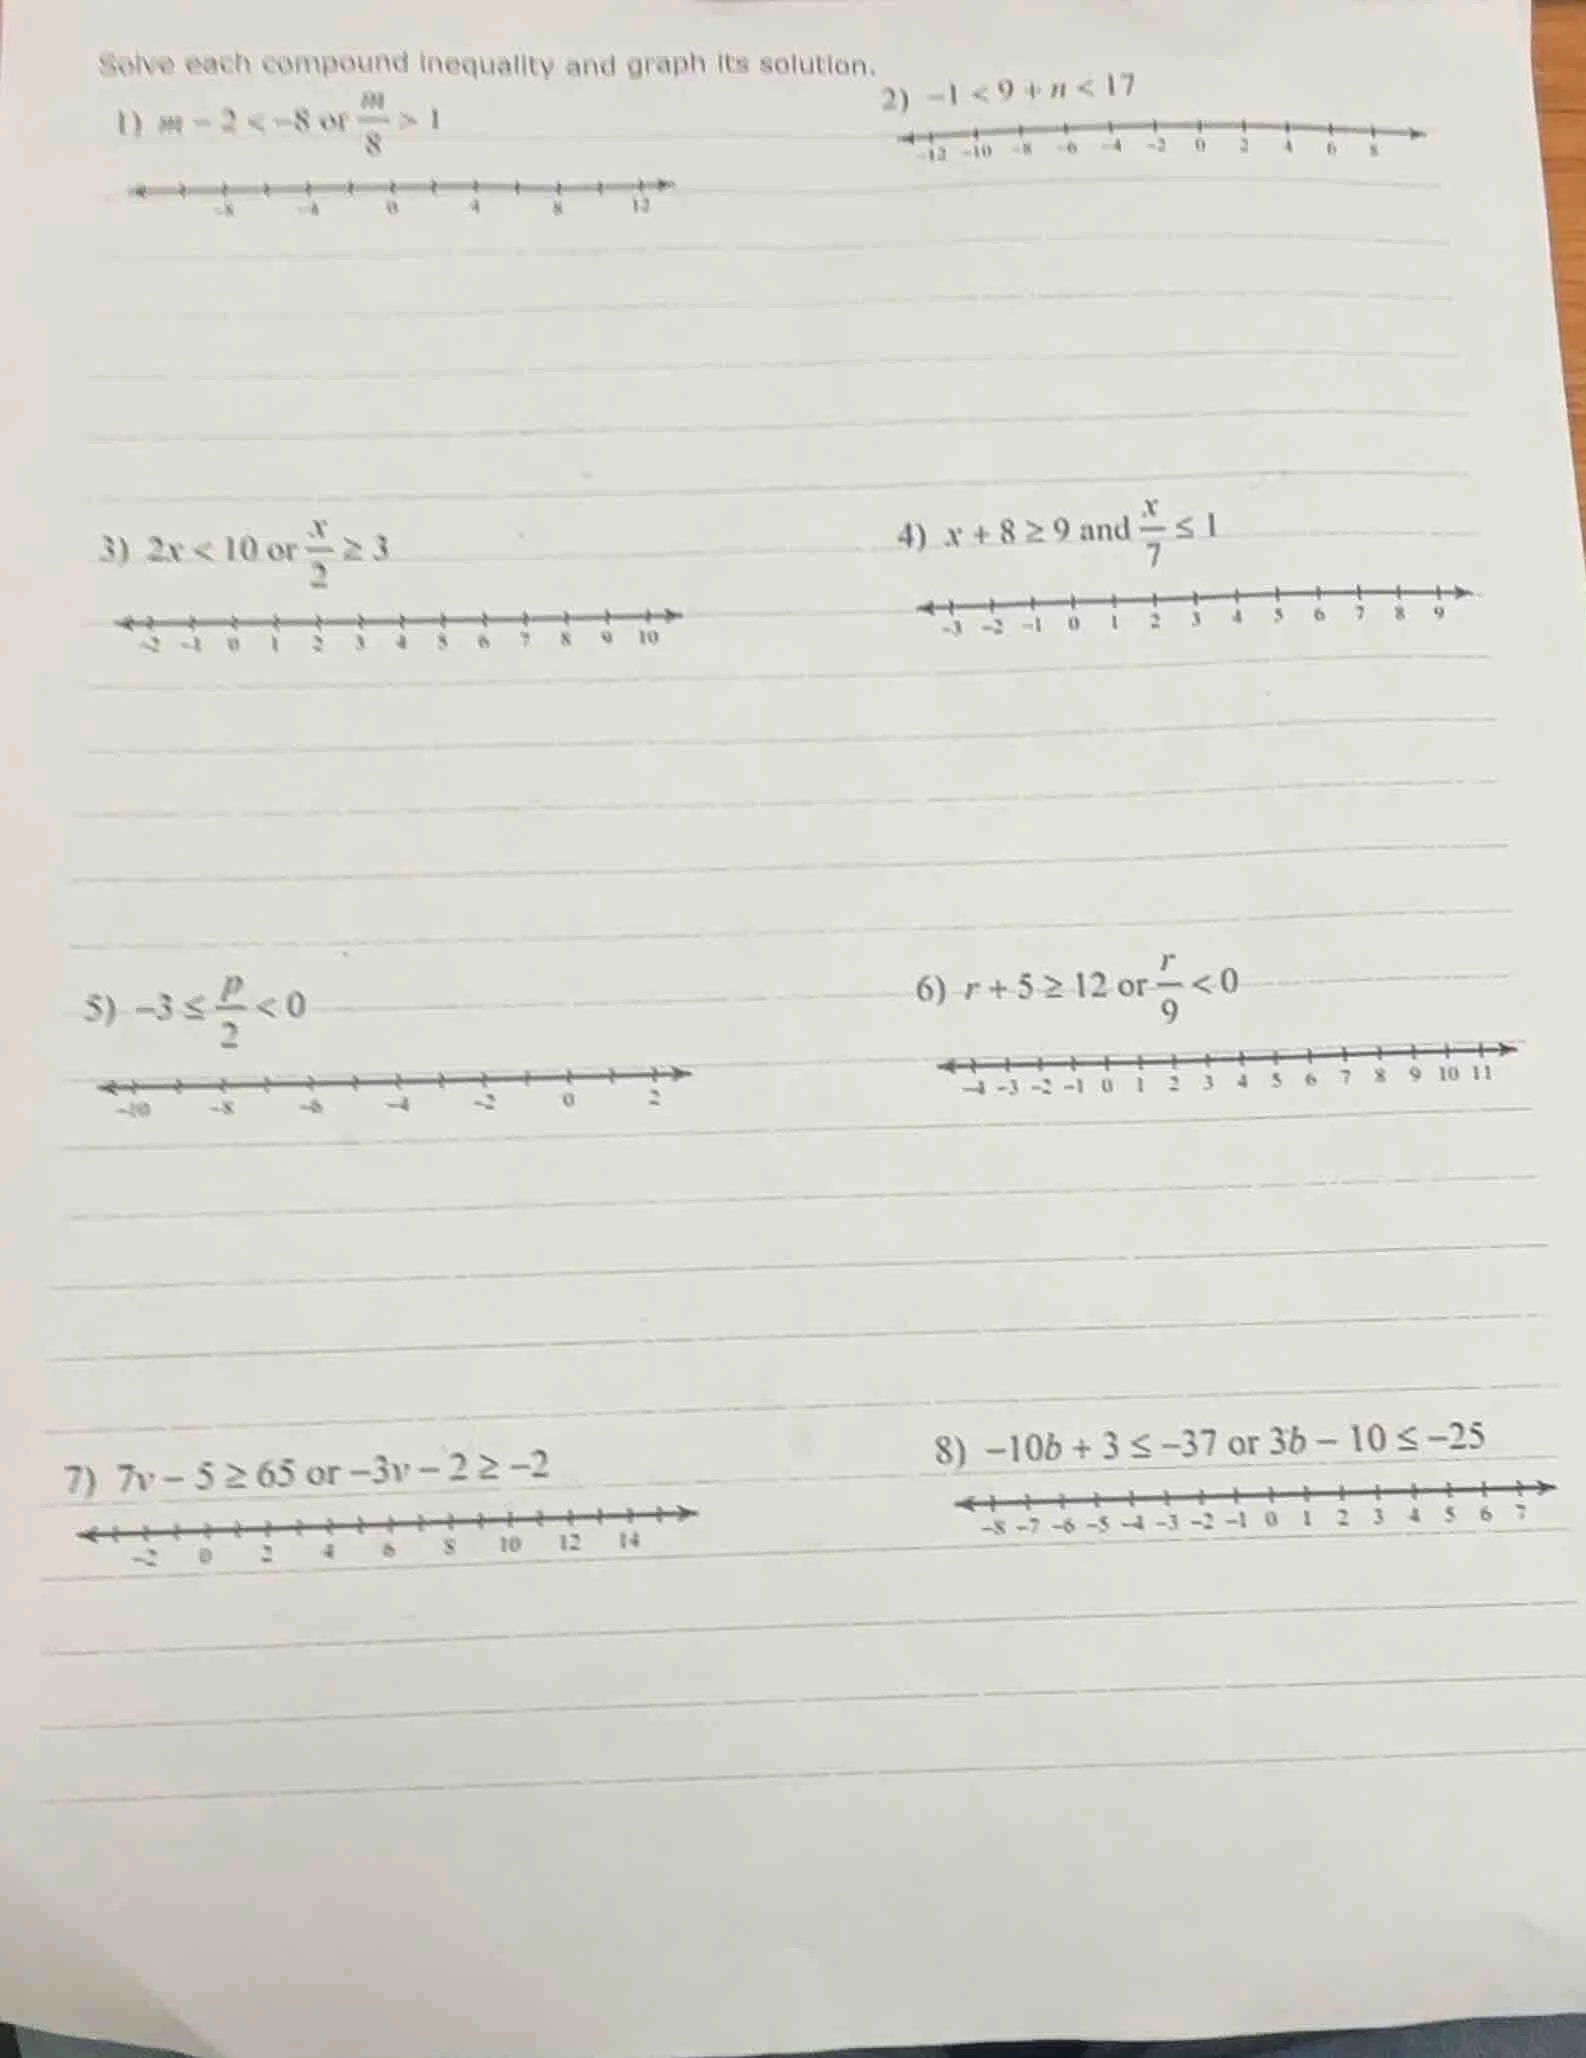 Solve each compound inequality and graph its solution.
1) m - 2 < -8 or m/8 > 1
-8 -4 0 4 8 12
2) -1 < 9 + n < 17
-12 -10 -8 -6 -4 -2 0 2 4 6 8
3) 2x < 10 or x/2 ≥ 3
-2 -1 0 1 2 3 4 5 6 7 8 9 10
4) x + 8 ≥ 9 and x/7 ≤ 1
-3 -2 -1 0 1 2 3 4 5 6 7 8 9
5) -3 ≤ p/2 < 0
-10 -8 -6 -4 -2 0 2
6) r + 5 ≥ 12 or r/9 < 0
-4 -3 -2 -1 0 1 2 3 4 5 6 7 8 9 10 11
7) 7v - 5 ≥ 65 or -3v - 2 ≥ -2
-2 0 2 4 6 8 10 12 14
8) -10b + 3 ≤ -37 or 3b - 10 ≤ -25
-8 -7 -6 -5 -4 -3 -2 -1 0 1 2 3 4 5 6 7